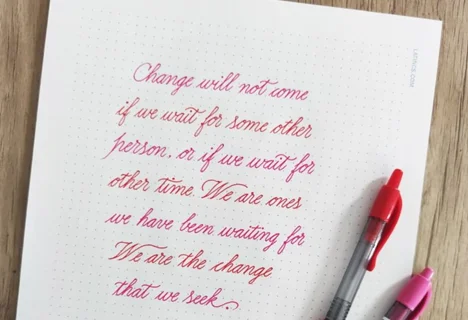 Change will not come
if we wait for some other
person, or if we wait for
other time. We are ones
we have been waiting for
We are the change
that we seek.